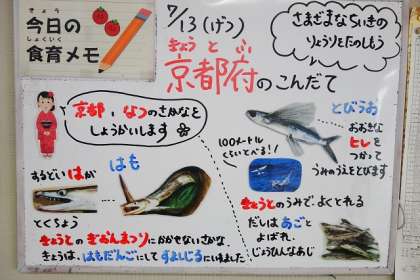 きょう
今日の
しょくいく
食育メモ
7/13(げつ)
きょうとふ
京都府のこんだて
さまざまなちいきの
りょうりをたのしもう
京都、なつのさかなを
しょうかいします
はも
するどいはが
とくちょう
きょうとのぎおんまつりにかかせないさかな。
きょうは、はもだんごにしてすましじるにいれました
とびうお
おおきな
ヒレを
つかって
うみのうえをとびます
100メートル
くらいとべる!
きょうとのうみで、よくとれる
だしはあごと
よばれ、
じょうひんなあじ